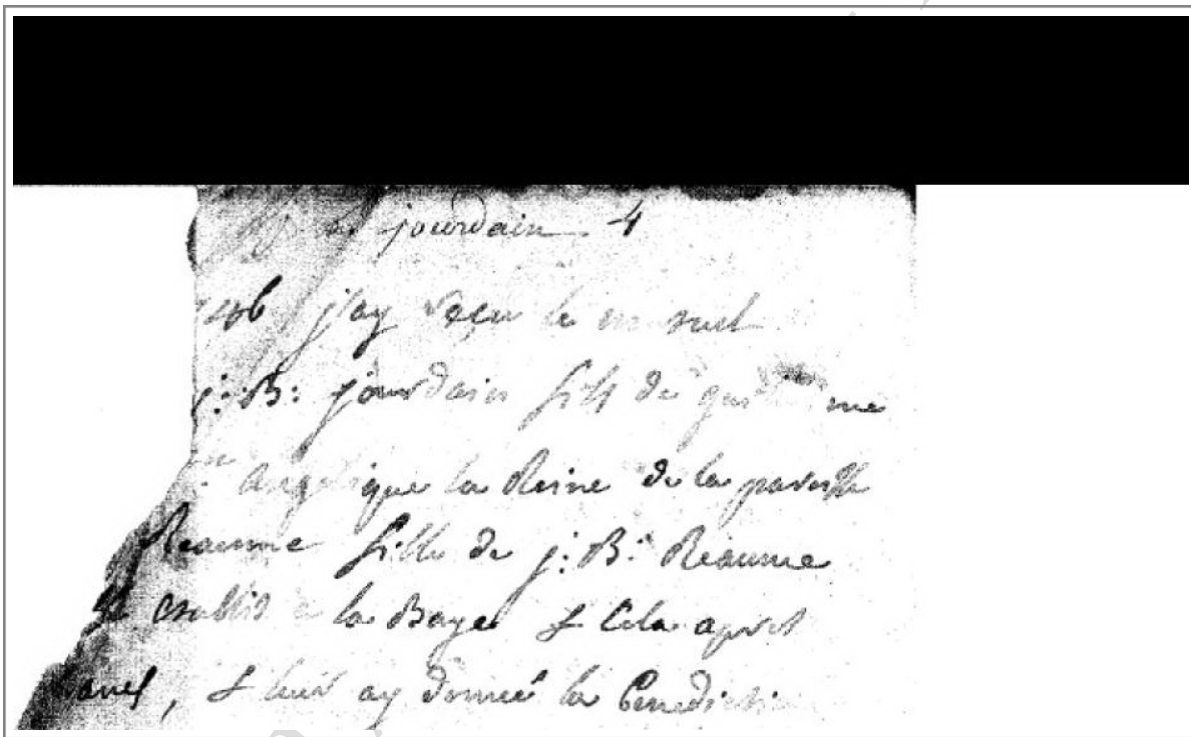 jourdain 4
j'ay reçu le m suel
j: B: jourdain fils de gui me
Angelique la Reine de la paroisse
Reaume fille de j: B: Reaume
establis a la Baye & Cela apres
, & leur ay donné la Benedicti